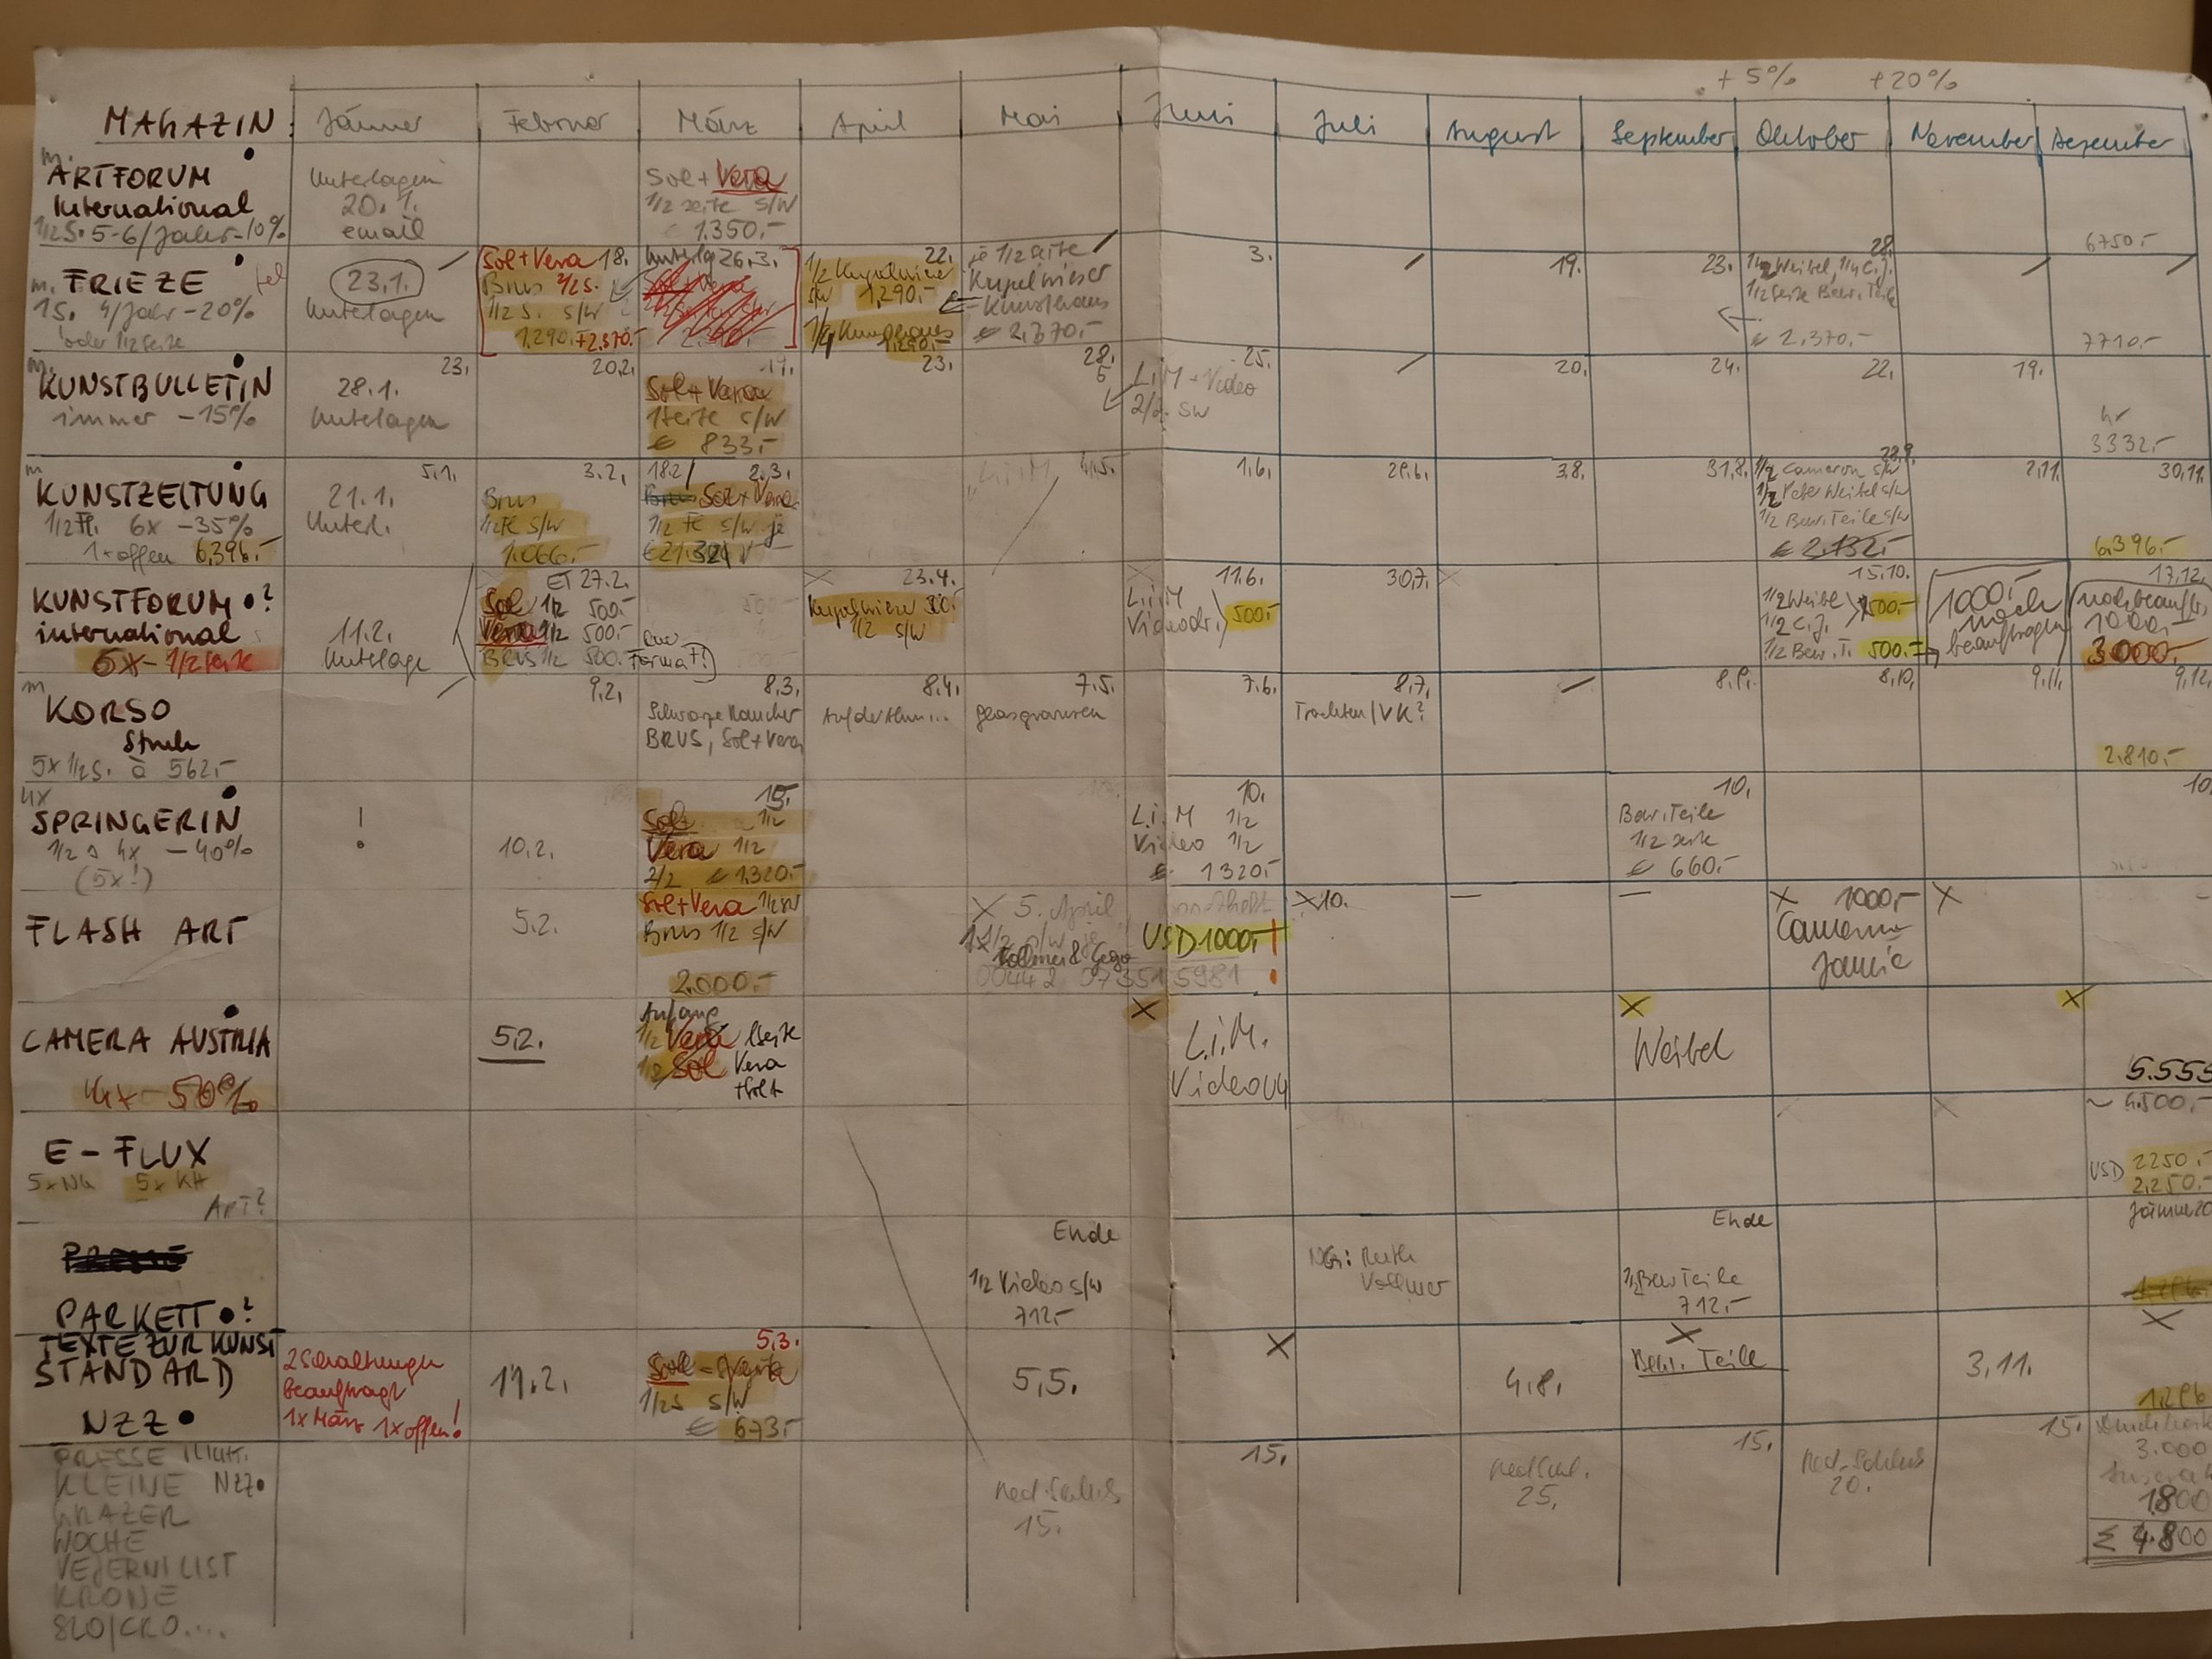 + 5% + 20%
MAGAZIN: Jänner Februar März April Mai Juni Juli August September Oktober November Dezember
m.
ARTFORUM
International
1/2 S. 5-6/Jahr -10%
Unterlagen
20.1.
email
Sol + Vera
1/2 seite s/w
€ 1.350,-
6750,-
m. FRIEZE tel
1S. 4/Jahr -20%
oder 1/2 Seite
23.1.
Unterlagen
Sol + Vera 18.
Brus 2/2 S.
1/2 S. s/w
1.290,- + 2.370,-
Unterlg 26.3.
22.
1/2 Kupelwieser
s/w 1.290,-
1/2 Kunsthaus
1.290,-
je 1/2 Seite
Kupelwieser
- Kunsthaus
€ 2.370,-
3.
19.
23.
28.
1/2 Weibel, 1/4 C.J.
1/2 Seite Bew. Teile
€ 2.370,-
7710,-
m.
KUNSTBULLETIN
immer -15%
23.
28.1.
Unterlagen
20.2.
19.
Sol + Vera
1 Seite s/w
€ 833,-
23.
28.
5
25.
L.i.M + Video
2/2. sw
20.
24.
22.
19.
4x
3332,-
m
KUNSTZEITUNG
1/2 Fl. 6x -35%
1x offen 6.396,-
5.1.
21.1.
Unterl.
3.2.
Brus
1/2 FE s/w
1.066,-
18.2/ 2.3.
Brus Sol + Vera
1/2 FE s/w je
L.i.M 4.5.
1.6.
29.6.
3.8.
31.8.
28.9.
1/2 Cameron s/w
1/2 Peter Weibel s/w
1/2 Bew. Teile s/w
€ 2.132,-
2.11.
30.11.
6.396,-
KUNSTFORUM ?
international
6x - 1/2 Seite
11.2.
Unterlage
ET 27.2.
Sol 1/2 500,-
Vera 1/2 500,-
BRUS 1/2 500,-
Format!
23.4.
Kupelwieser 500,-
1/2 s/w
11.6.
L.i.M
Videodr. 500,-
30.7.
15.10.
1/2 Weibel 500,-
1/2 C.J.
1/2 Bew. T. 500,-
1000,-
noch
beauftragen
17.12.
noch beauftr.
1000,-
3000,-
m
KORSO
Struh
5x 1/2 S. à 562,-
9.2.
8.3.
Schwarze Raucher
BRUS, Sol + Vera
8.4.
Auf der Alm...
7.5.
grasgrausen
7.6.
8.7.
Trachten/VK?
8.9.
8.10.
9.11.
9.12.
2.810,-
4x
SPRINGERIN
1/2 S 4x -40%
(5x!)
!
10.2.
15.
Sol 1/2
Vera 1/2
2/2 € 1.320,-
10.
L.i.M 1/2
Video 1/2
€ 1320,-
10.
Bew. Teile
1/2 seite
€ 660,-
10.
FLASH ART
5.2.
Sol + Vera 1/2 sw
Brus 1/2 s/w
2.000,-
X 5. April
1x 1/2 s/w je
Vollmer & Gego
00442 073515981
USD 1000,- !
X 10.
X 1000,-
Cameron
Jamie
X
CAMERA AUSTRIA
4x - 50%
5.2.
Anfang
1/2 Vera 1 Seite
1/2 Sol Vera
+ Sol
X
L.i.M.
Video 04
X
Weibel
X
5.555
~ 4.500,-
E-FLUX
5x NG 5x KH
ART?
USD 2250,-
2.250,-
Jänner 20
PRESSE
PARKETT ?
Ende
1/2 Video s/w
712,-
NG: Ruth
Vollmer
Ende
1/2 Bew Teile
712,-
X
TEXTE ZUR KUNST
STANDARD
NZZ
2 Schaltungen
beauftragt
1x März 1x offen!
17.2.
5.3.
1/2 S s/w
€ 673,-
5.5.
X
4.8.
X
Bew. Teile
3.11.
PRESSE
KLEINE NZZ
GRAZER
WOCHE
VEJERNI LIST
KRONE
SLO/CRO....
Red. Schluss
15.
15.
Red Schl.
25.
15.
Red.-Schluss
20.
15.
3.000
1800
Σ 4.800